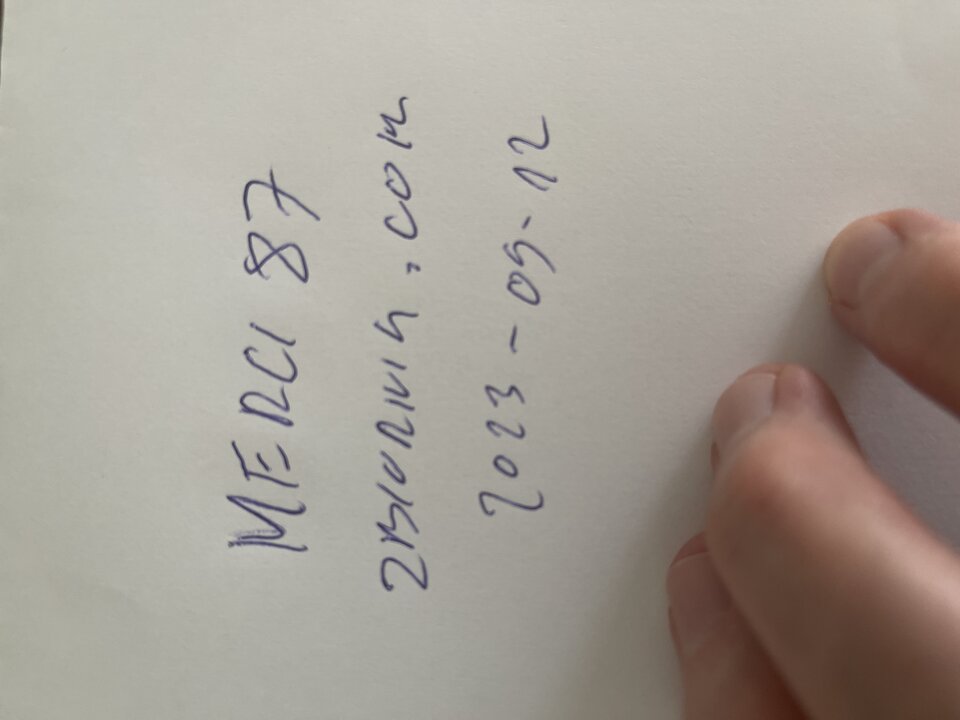 MERCI 87
zbiornik.com
2023-09-12